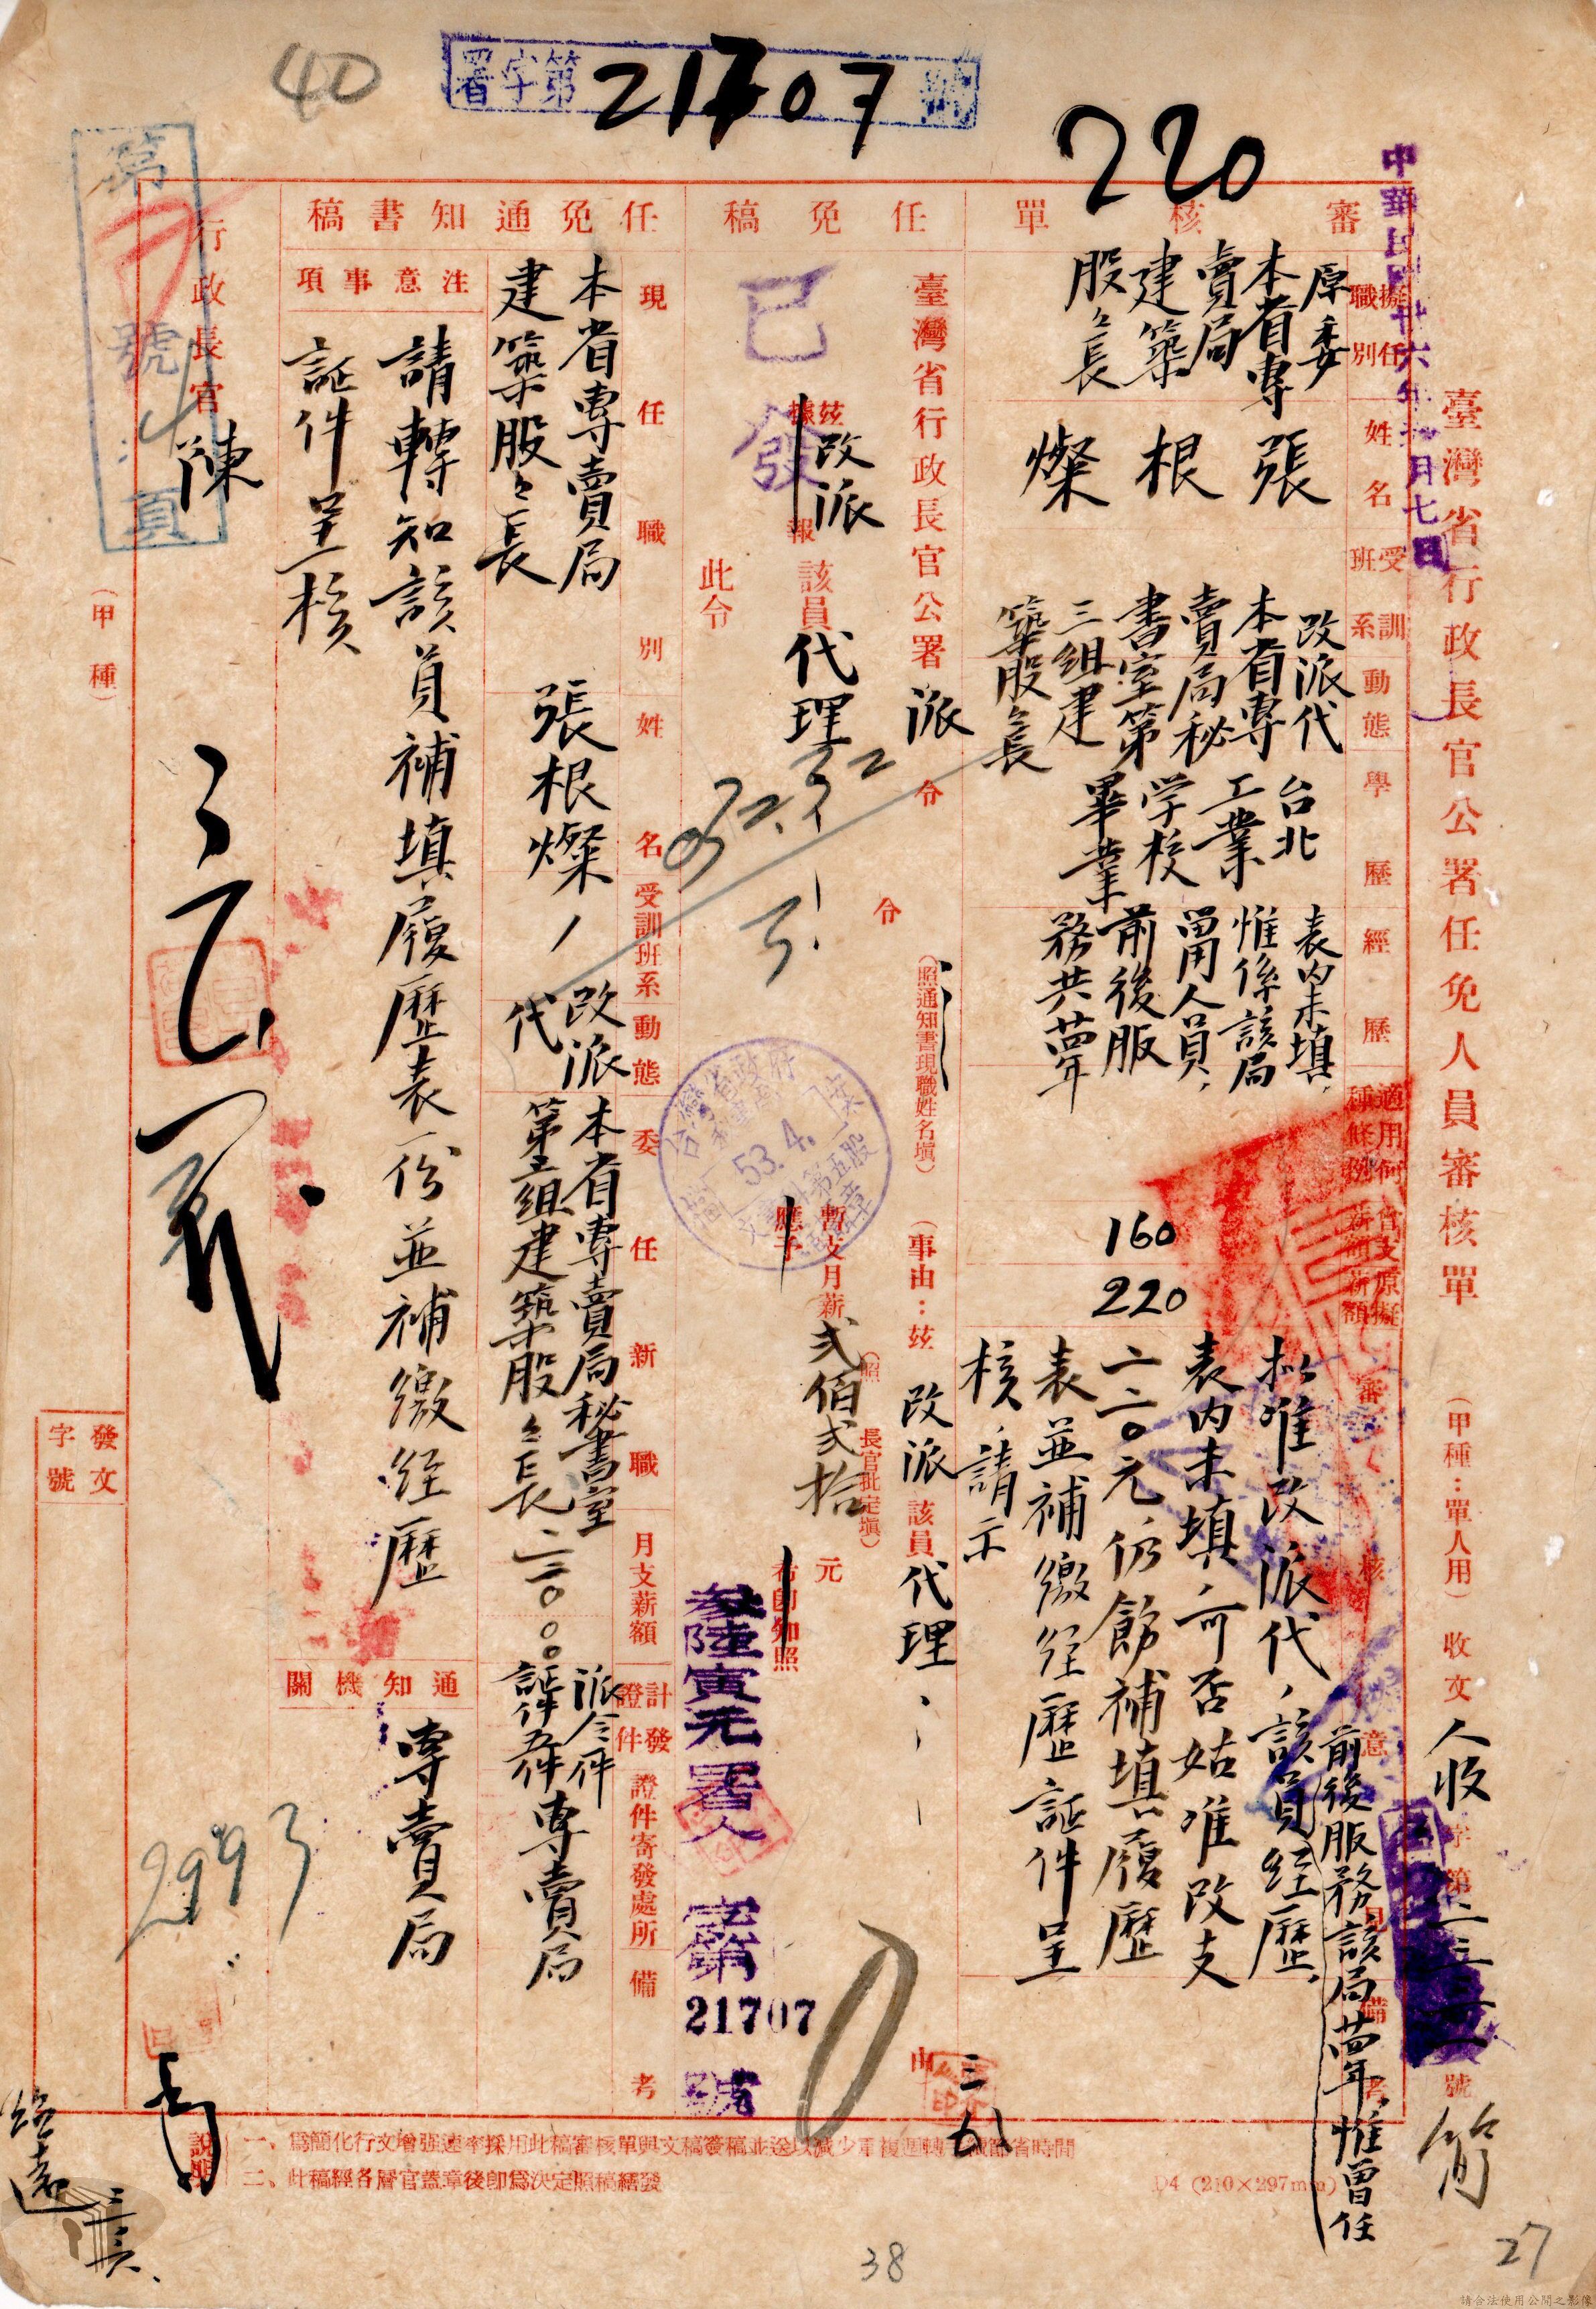 40
署字第21707號
220
中華民國卅六年三月七日
臺灣省行政長官公署任免人員審核單
（甲種：單人用）
收文
人收字第二三三一號
審核單
擬任職別
原委
本省專
賣局
建築
股々長
姓名
張
根
燦
受訓班系
動態
改派代
本省專
賣局秘
書室第
三組建
築股々長
學歷
台北
工業
学校
畢業
經歷
表內未填，
惟係該局
留用人員，
前後服
務共
適用何種條例
160
220
審核意見
拟准改派代，該員經歷，
前後服務該局
惟曾任
表內未填，可否姑准改支
二二〇元，仍飭補填履歷
表並補繳經歷証件呈
核，請示
備考
任免稿
臺灣省行政長官公署
派令
令
（照通知書現職姓名填）
（事由：茲改派該員代理
由
三
茲據報
改派
該員
代理
應予
暫支月薪
（照長官批定填）
弍佰弍拾
元
希卽知照
此令
已發
53.4.
參陸寅元署人
字第
21707
號
任免通知書稿
現任職別
本省專賣局
建築股々長
姓名
張根燦
受訓班系
動態
改派
代
委任新職
本省專賣局秘書室
第三組建築股々長
月支薪額
計發證件
派令一件
証件五件
證件寄發處所
專賣局
備考
注意事項
請轉知該員補填履歷表一份並補繳經歷
証件呈核
通知機關
專賣局
行政長官
陳
（甲種）
第
號
頁
2993
發文
字號
說明
一、爲簡化行文增强速率採用此稿審核單與文稿簽稿並送以減少重複週轉
節省時間
二、此稿經各層官蓋章後卽爲決定照稿繕發
D4（210×297mm）
38
27
請合法使用公開之影像